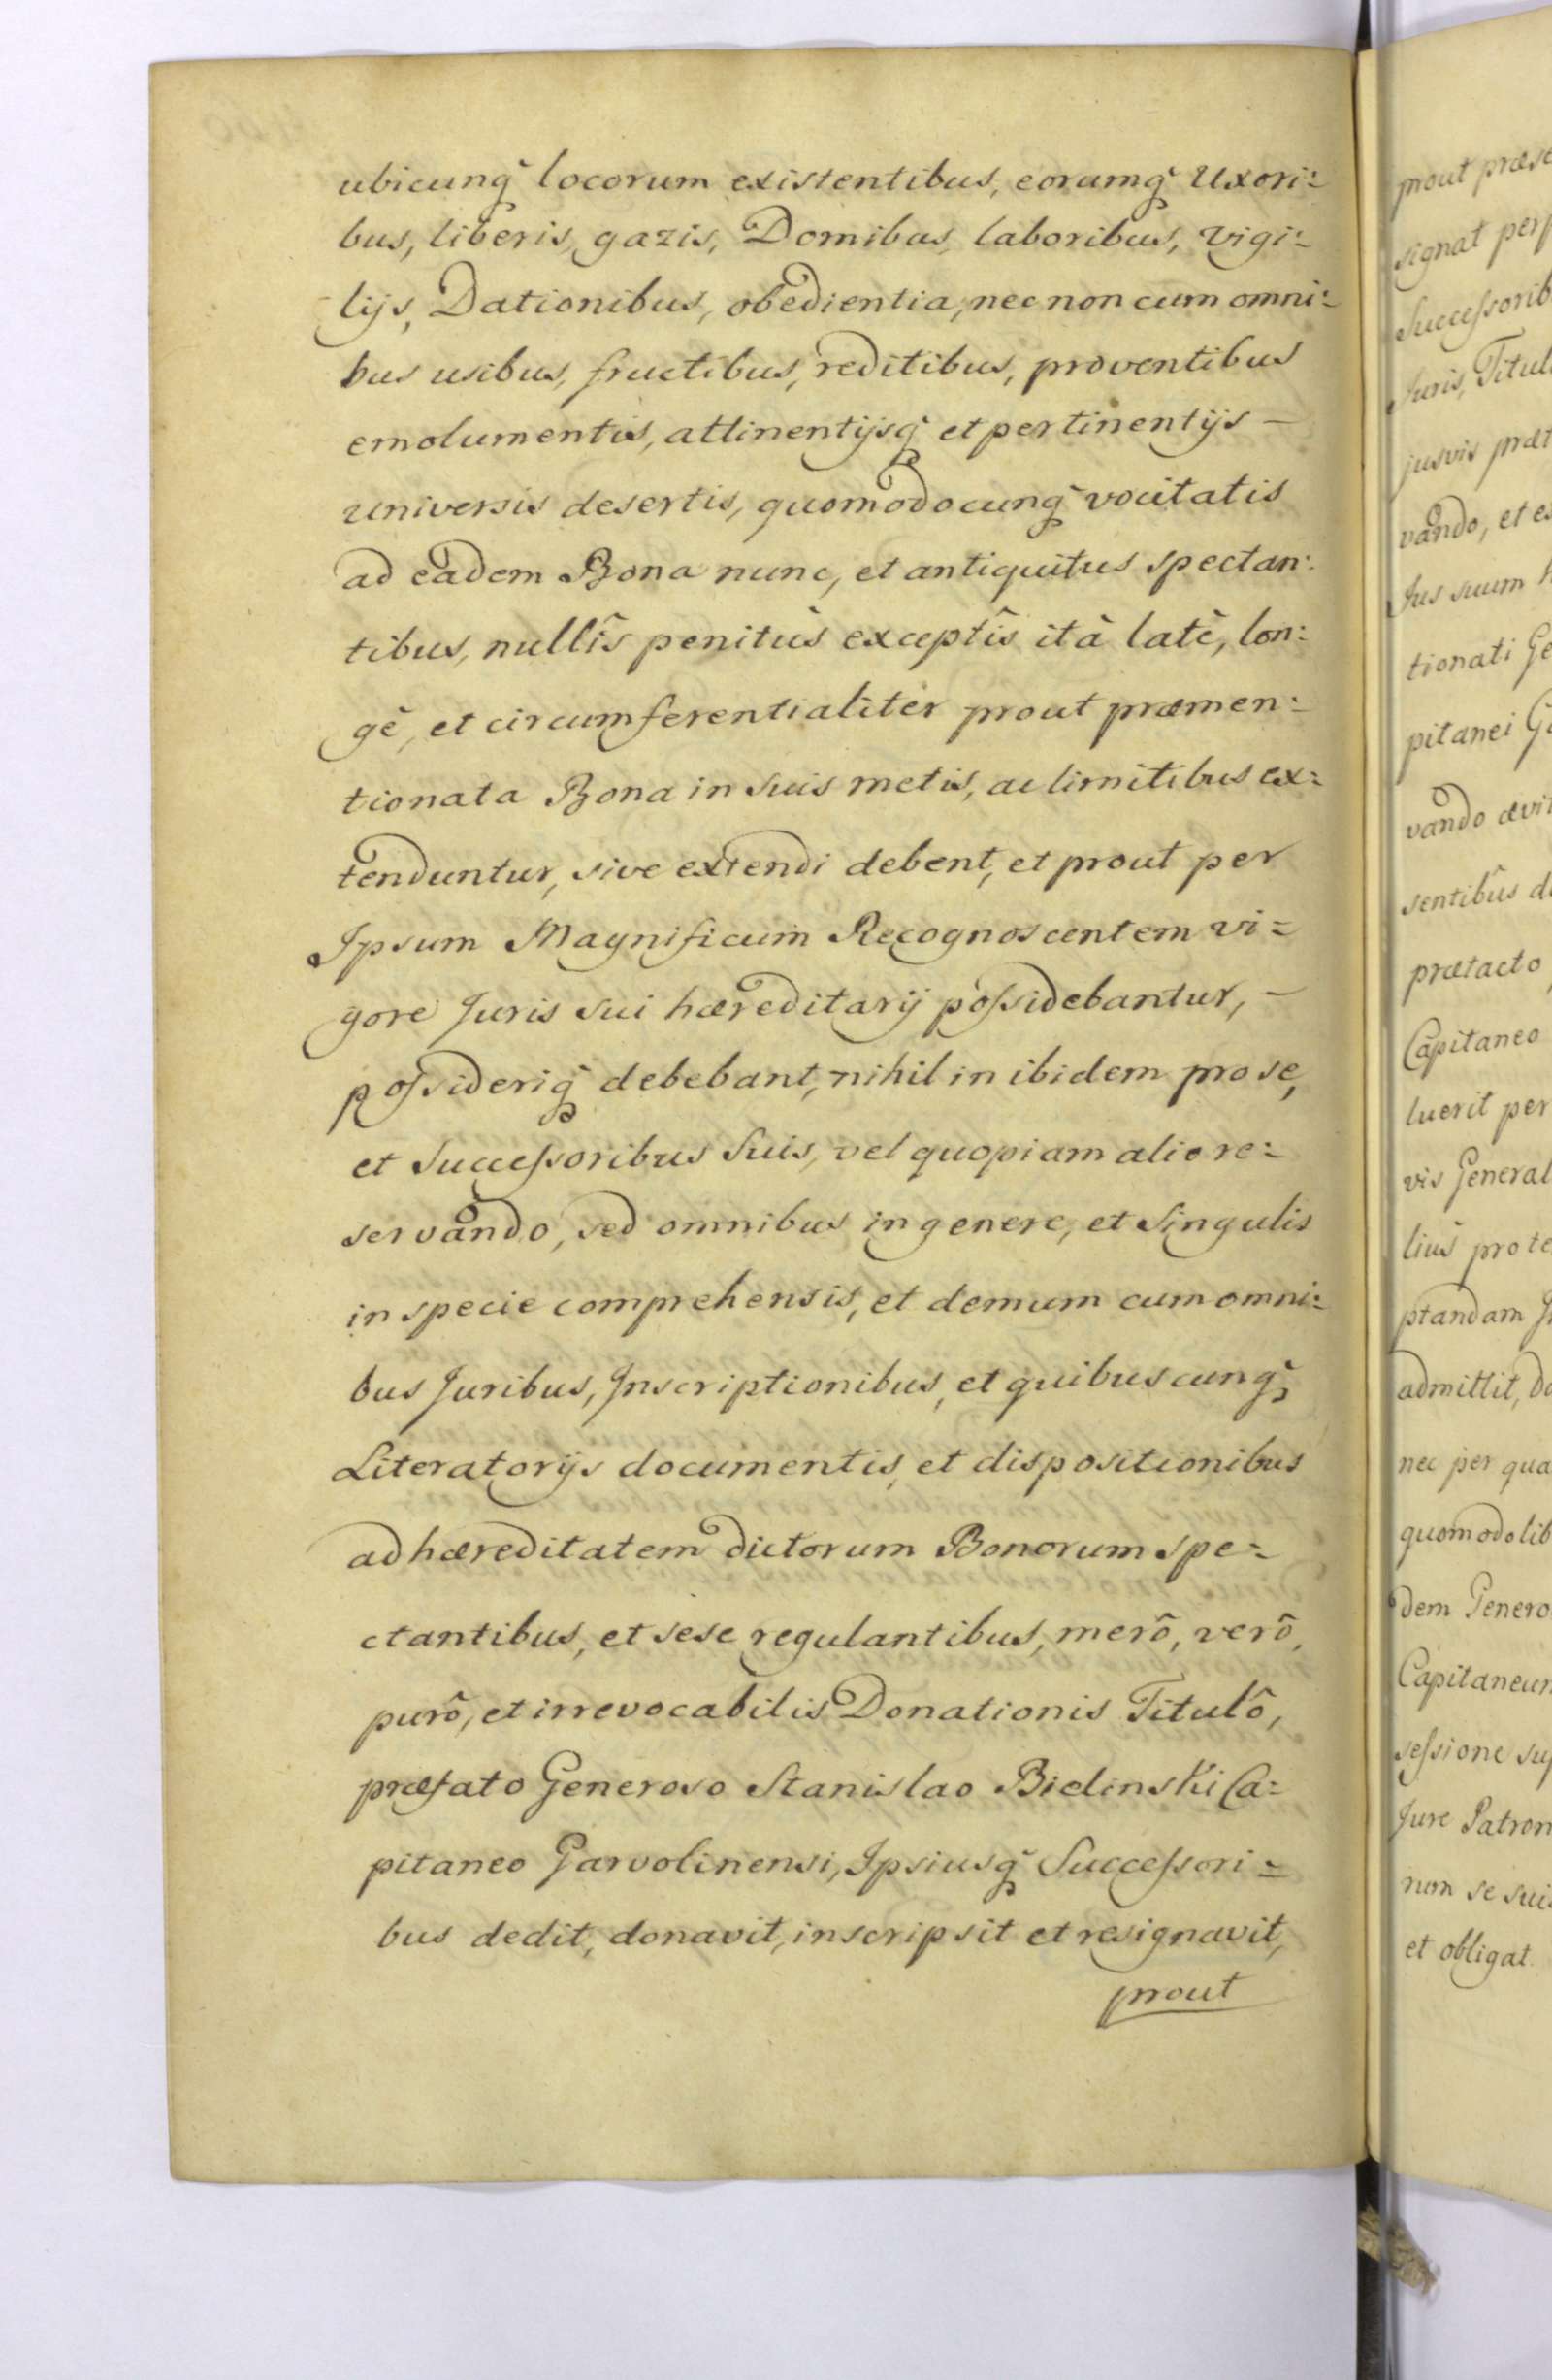 ubicunq̃ locorum existentibus, eorumq̃ Uxori=
bus, liberis, gazis, Domibus, laboribus, vigi=
lijs, Dationibus, obedientia, nec non cum omni=
bus usibus, fructibus, reditibus, proventibus
emolumentis, attinentijsq̃ et pertinentijs –
universis desertis, quomodocunq̃ vocitatis
ad eadem Bona nunc, et antiquitus spectan:
tibus, nullîs penitùs exceptîs ità latè, lon:
gè, et circumferentialiter prout præmen:
tionata Bona in suis metis, ac limitibus ex=
tenduntur, sive extendi debent, et prout per
Ipsum Magnificum Recognoscentem vi=
gore Juris sui hæreditarij poſsidebantur, –
poſsideriq̃ debebant, nihil in ibidem pro se,
et Succeſsoribus Suis, vel quopiam alio re=
servando, sed omnibus in genere, et Singulis
in specie comprehensis, et demum cum omni=
bus Juribus, Inscriptionibus, et quibuscunq̃
Literatorijs documentis, et dispositionibus
ad hæreditatem dictorum Bonorum spe=
ctantibus, et sese regulantibus, merô, verô,
purô, et irrevocabilis Donationis Titulô,
præfato Generoso Stanislao Bielinski Ca=
pitaneo Garvolinensi, Ipsiusq̃ Succeſsori=
bus dedit, donavit, inscripsit et resignavit,
prout
prout
signat
Succeſsorib
Juris, Titul
jusvis præt
vando, et
Jus suum
tionati Ge
pitanei
vando
sentibûs
prætacto
Capitaneo
luerit per
vis General
liùs pro
ptandam
admittit,
nec per qua
quomodolib
dem Genero
Capitaneum
seſsione
Jure Patron
num se
et obligat.